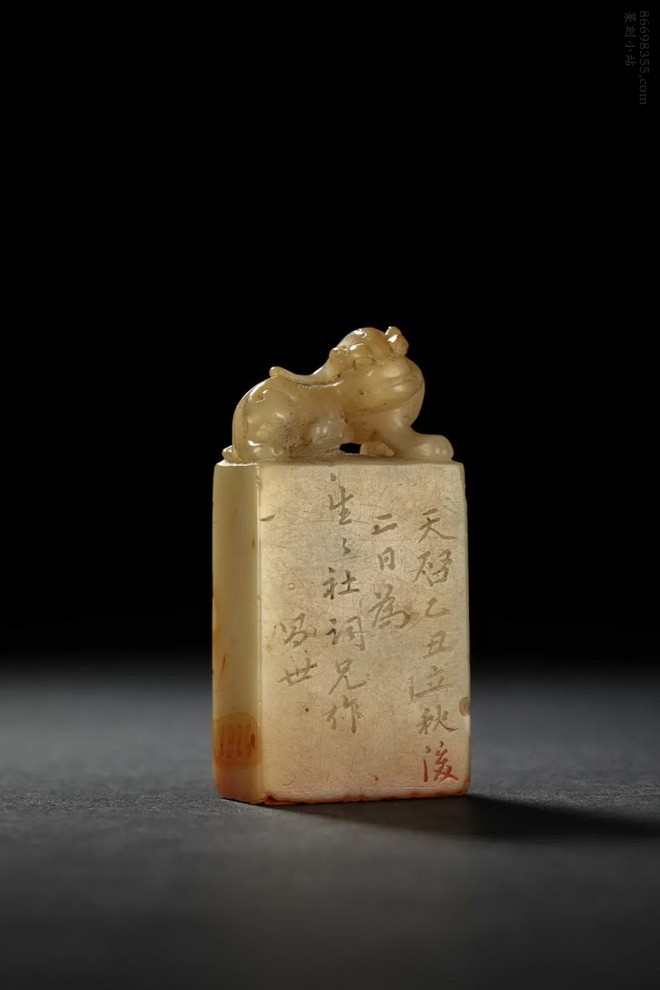 天启乙丑立秋後
二日為
生〻社詞兄作
昌世
86698355.com
篆刻小站